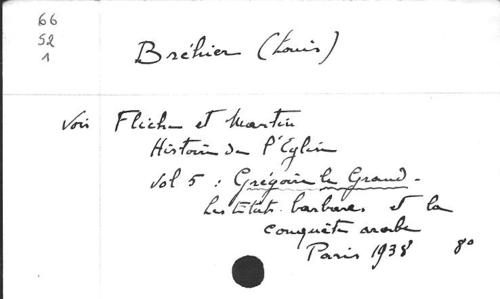 66
52
1
Bréhier (Louis)
voir Fliche et Martin
Histoire de l'Eglise
Vol 5 : Grégoire le Grand -
les Etats barbares et la
conquête arabe
Paris 1938 8º